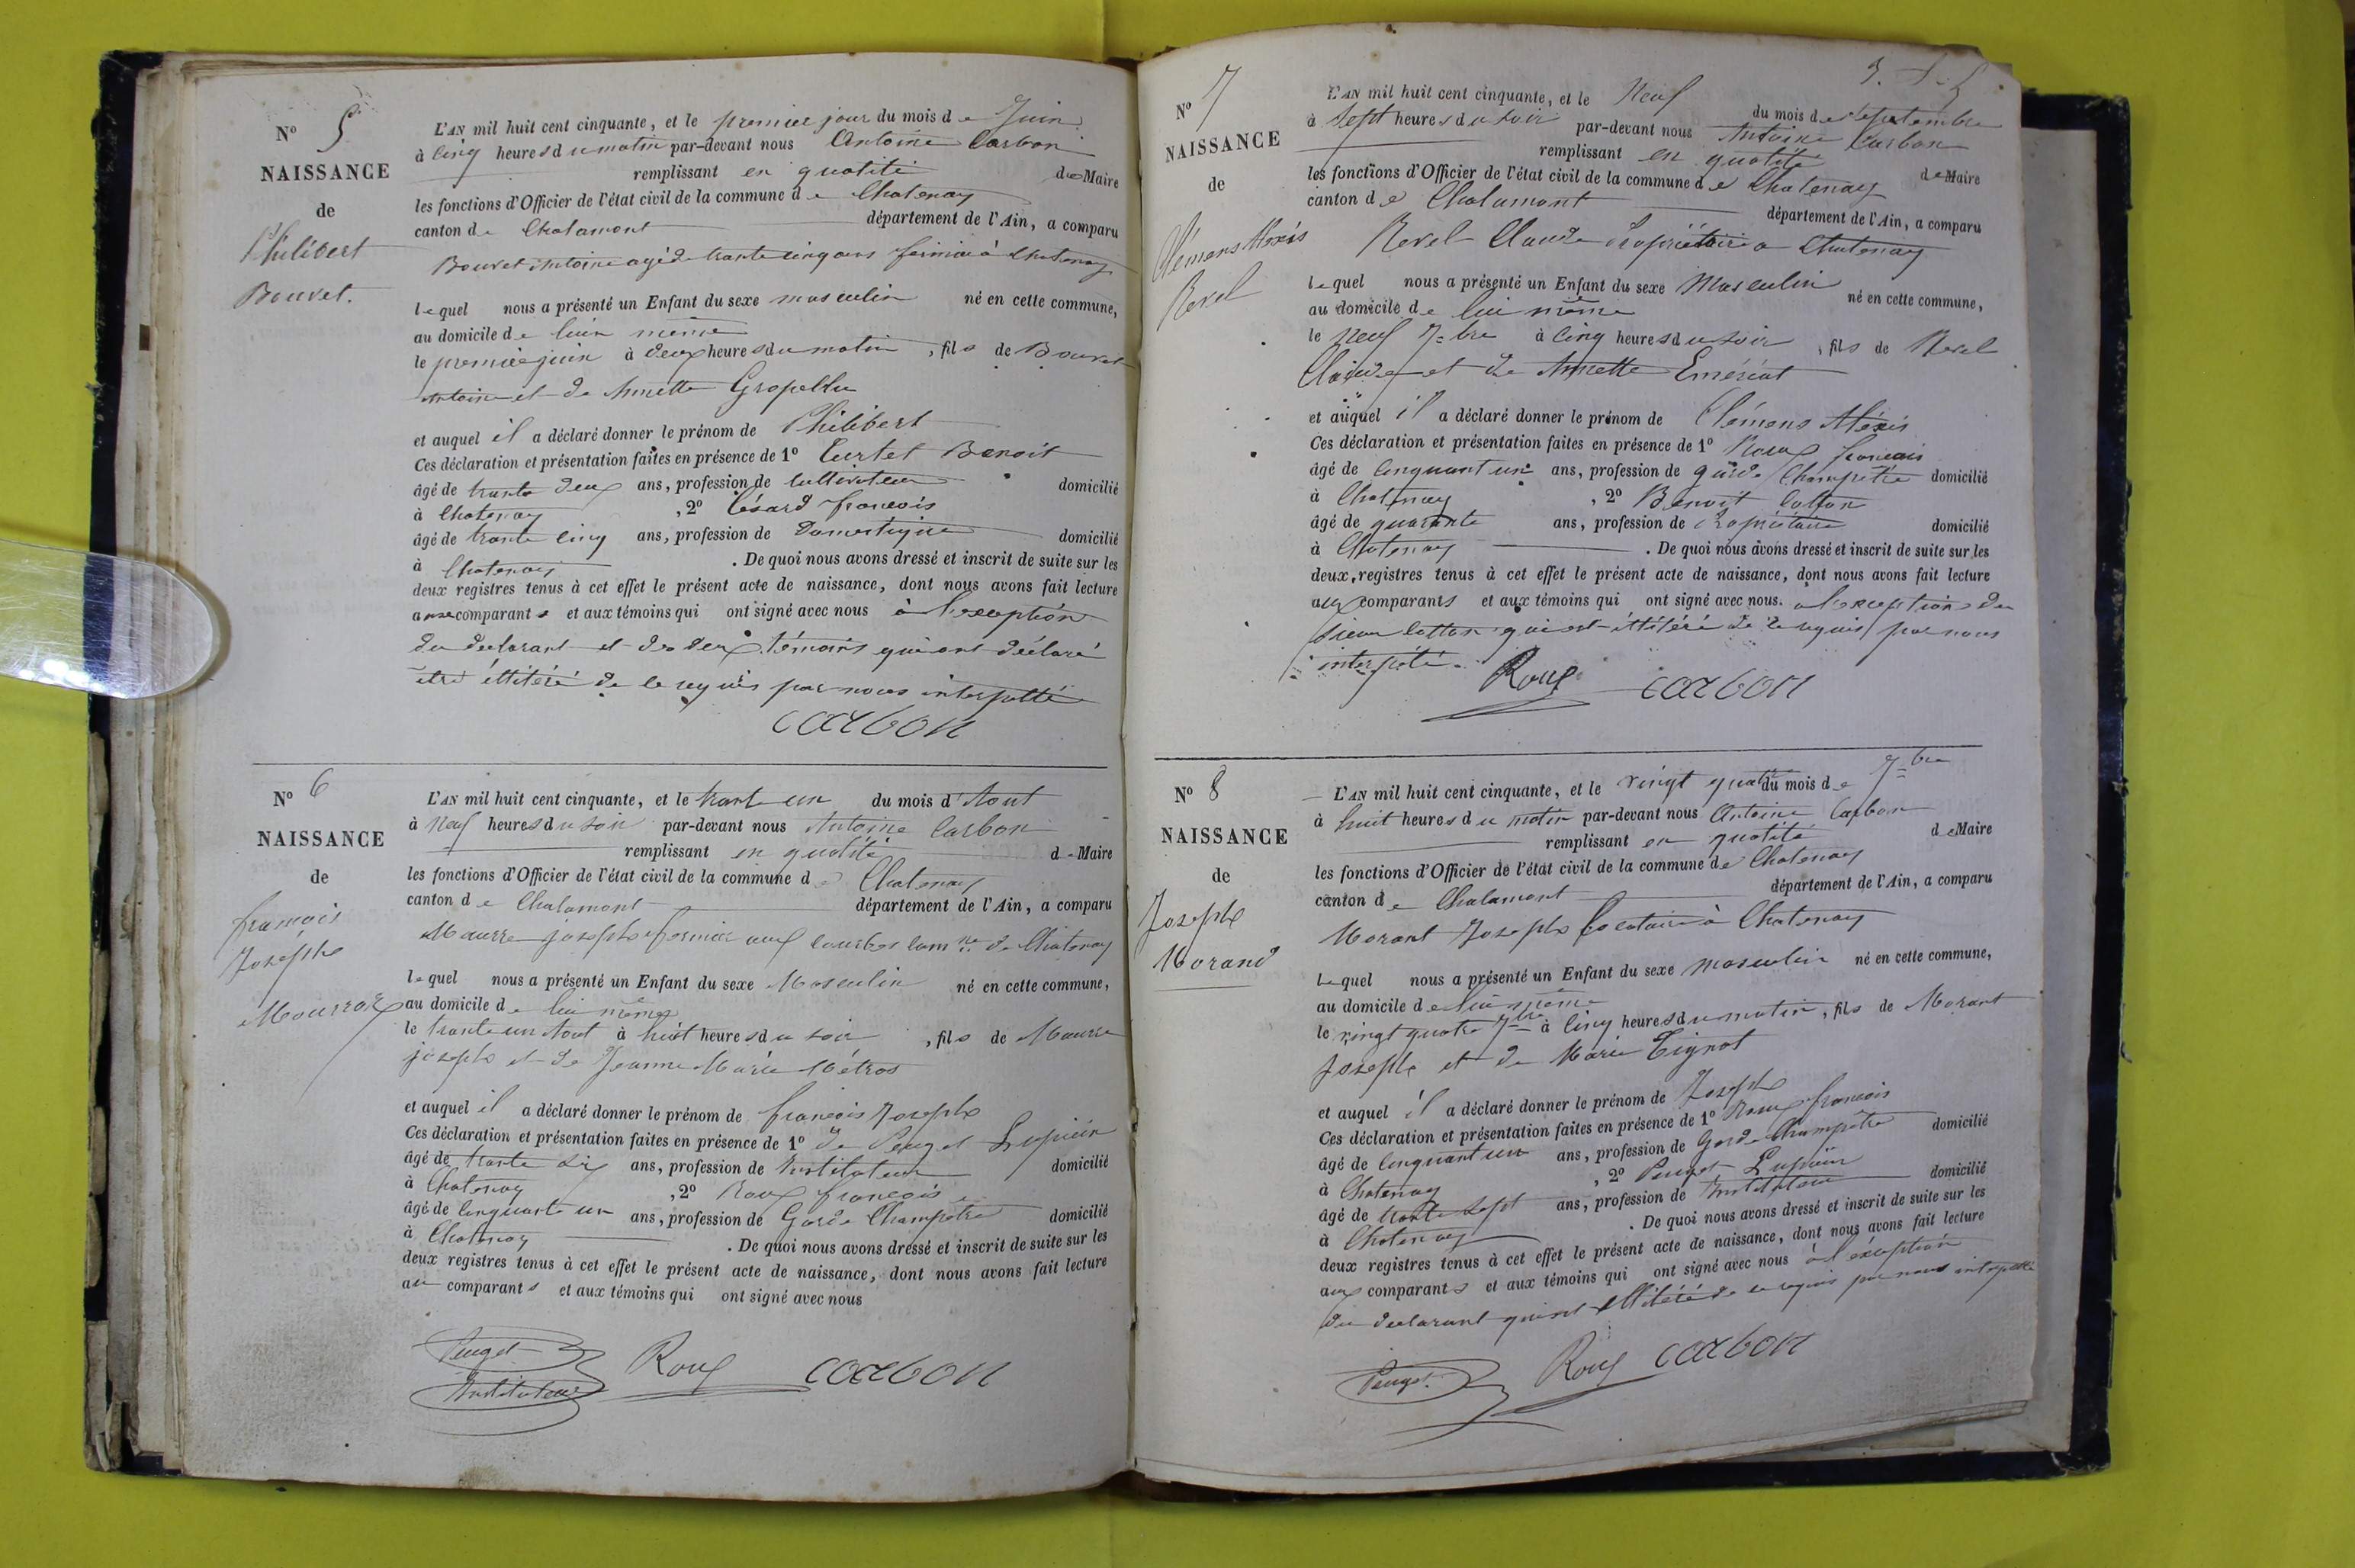 N° 5
NAISSANCE
de
Philibert
Bouvet.
L'AN mil huit cent cinquante, et le premier jour du mois de Juin
à cinq heures du matin par-devant nous Antoine Carbon
remplissant en qualité de Maire
les fonctions d'Officier de l'état civil de la commune de Chatenay
canton de Chalamont département de l'Ain, a comparu
Bouvet Antoine agé de trante cinq ans fermier à Chatenay
lequel nous a présenté un Enfant du sexe masculin né en cette commune,
au domicile de luin même
le premier juin à deux heures du matin, fils de Bouvet
Antoine et de Annette Gropellu
et auquel il a déclaré donner le prénom de Philibert
Ces déclaration et présentation faites en présence de 1° Curtet Benoit
âgé de trante deux ans, profession de cultivateur domicilié
à Chatenay, 2° Césard francois
âgé de trante cinq ans, profession de Domestique domicilié
à Chatenay. De quoi nous avons dressé et inscrit de suite sur les
deux registres tenus à cet effet le présent acte de naissance, dont nous avons fait lecture
aux comparants et aux témoins qui ont signé avec nous à l'exception
du declarant et des deux témoins qui ont déclaré
être illitéré de ce requis par nous interpellé
carbon
N° 6
NAISSANCE
de
francois
Joseph
Mourre
L'AN mil huit cent cinquante, et le trante un du mois d'Aout
à Neuf heures du soir par-devant nous Antoine Carbon
remplissant en qualité de Maire
les fonctions d'Officier de l'état civil de la commune de Chatenay
canton de Chalamont département de l'Ain, a comparu
Mourre joseph fermier aux courbes com.ne de Chatenay
lequel nous a présenté un Enfant du sexe Masculin né en cette commune,
au domicile de lui même
le trante un Aout à huit heures du soir, fils de Mourre
joseph et de Jeanne Marie Métras
et auquel il a déclaré donner le prénom de francois Joseph
Ces déclaration et présentation faites en présence de 1° de Peuget Lupicin
âgé de trante six ans, profession de Instituteur domicilié
à Chatenay, 2° Roux francois
âgé de cinquante un ans, profession de Garde Champetre domicilié
à Chatenay. De quoi nous avons dressé et inscrit de suite sur les
deux registres tenus à cet effet le présent acte de naissance, dont nous avons fait lecture
au comparants et aux témoins qui ont signé avec nous
Peuget Roux carbon
Instituteur
N° 7
NAISSANCE
de
Clémens Alexis
Revel
L'AN mil huit cent cinquante, et le Neuf du mois de Septembre
à Sept heures du soir par-devant nous Antoine Carbon
remplissant en qualité de Maire
les fonctions d'Officier de l'état civil de la commune de Chatenay
canton de Chalamont département de l'Ain, a comparu
Revel Claude Propriétaire a Chatenay
lequel nous a présenté un Enfant du sexe Masculin né en cette commune,
au domicile de lui même
le neuf 7bre à cinq heures du soir, fils de Revel
Claude et de Annette Emériat
et auquel il a déclaré donner le prénom de Clémens Aléxis
Ces déclaration et présentation faites en présence de 1° Roux francois
âgé de cinquant un ans, profession de garde Champetre domicilié
à Chatenay, 2° Benoit Cotton
âgé de quarante ans, profession de Propriétaire domicilié
à Chatenay. De quoi nous avons dressé et inscrit de suite sur les
deux registres tenus à cet effet le présent acte de naissance, dont nous avons fait lecture
aux comparants et aux témoins qui ont signé avec nous. à l'exception du
sieur Cotton qui est illitéré de ce requis par nous
interpélé.
Roux carbon
N° 8
NAISSANCE
de
Joseph
Morand
L'AN mil huit cent cinquante, et le vingt quatre du mois de 7bre
à huit heures du matin par-devant nous Antoine Carbon
remplissant en qualité de Maire
les fonctions d'Officier de l'état civil de la commune de Chatenay
canton de Chalamont département de l'Ain, a comparu
Morant Joseph Locataire à Chatenay
Lequel nous a présenté un Enfant du sexe masculin né en cette commune,
au domicile de lui même
le vingt quatre 7bre à cinq heures du matin, fils de Morant
Joseph et de Marie Tignat
et auquel il a déclaré donner le prénom de Joseph
Ces déclaration et présentation faites en présence de 1° Roux francois
âgé de cinquant un ans, profession de Garde Champêtre domicilié
à Chatenay, 2° Peuget Lupicin
âgé de trante sept ans, profession de Instituteur domicilié
à Chatenay. De quoi nous avons dressé et inscrit de suite sur les
deux registres tenus à cet effet le présent acte de naissance, dont nous avons fait lecture
aux comparants et aux témoins qui ont signé avec nous à l'exception
du declarant qui est illitéré de ce requis par nous interpellé
Peuget Roux carbon